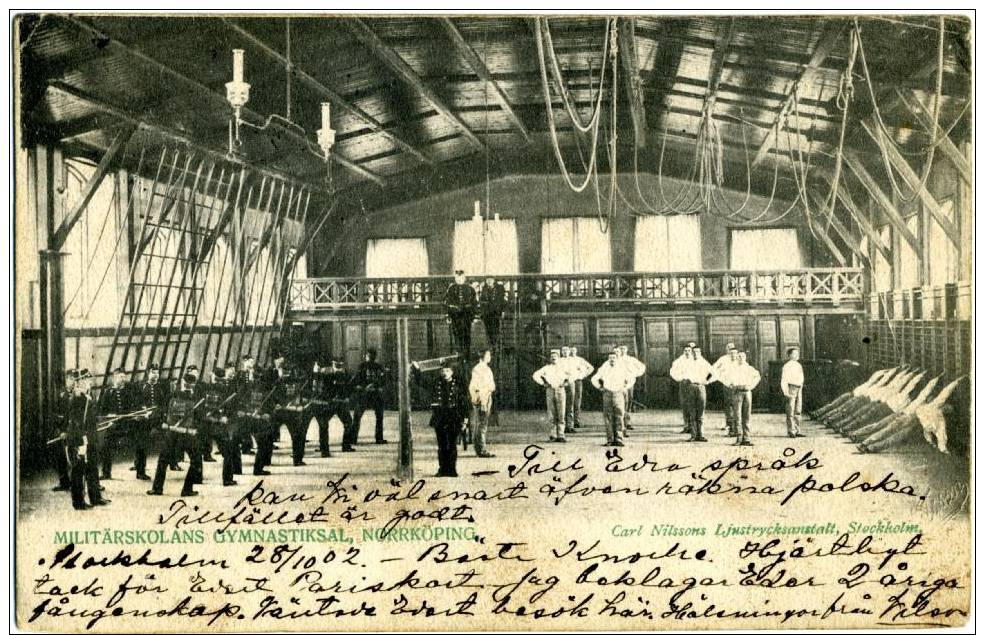 – Till Edra språk
kan Ni väl snart äfven räkna polska.
Tillfället är godt.
MILITÄRSKOLANS GYMNASTIKSAL, NORRKÖPING.
Carl Nilssons Ljustrycksanstalt, Stockholm.
Stockholm 28/10 02. – Bäste Knoche. Hjärtligt
tack för Edert Pariskort – Jag beklagar Eder 2 åriga
fångenskap. Väntade Edert besök här. Hälsningar från